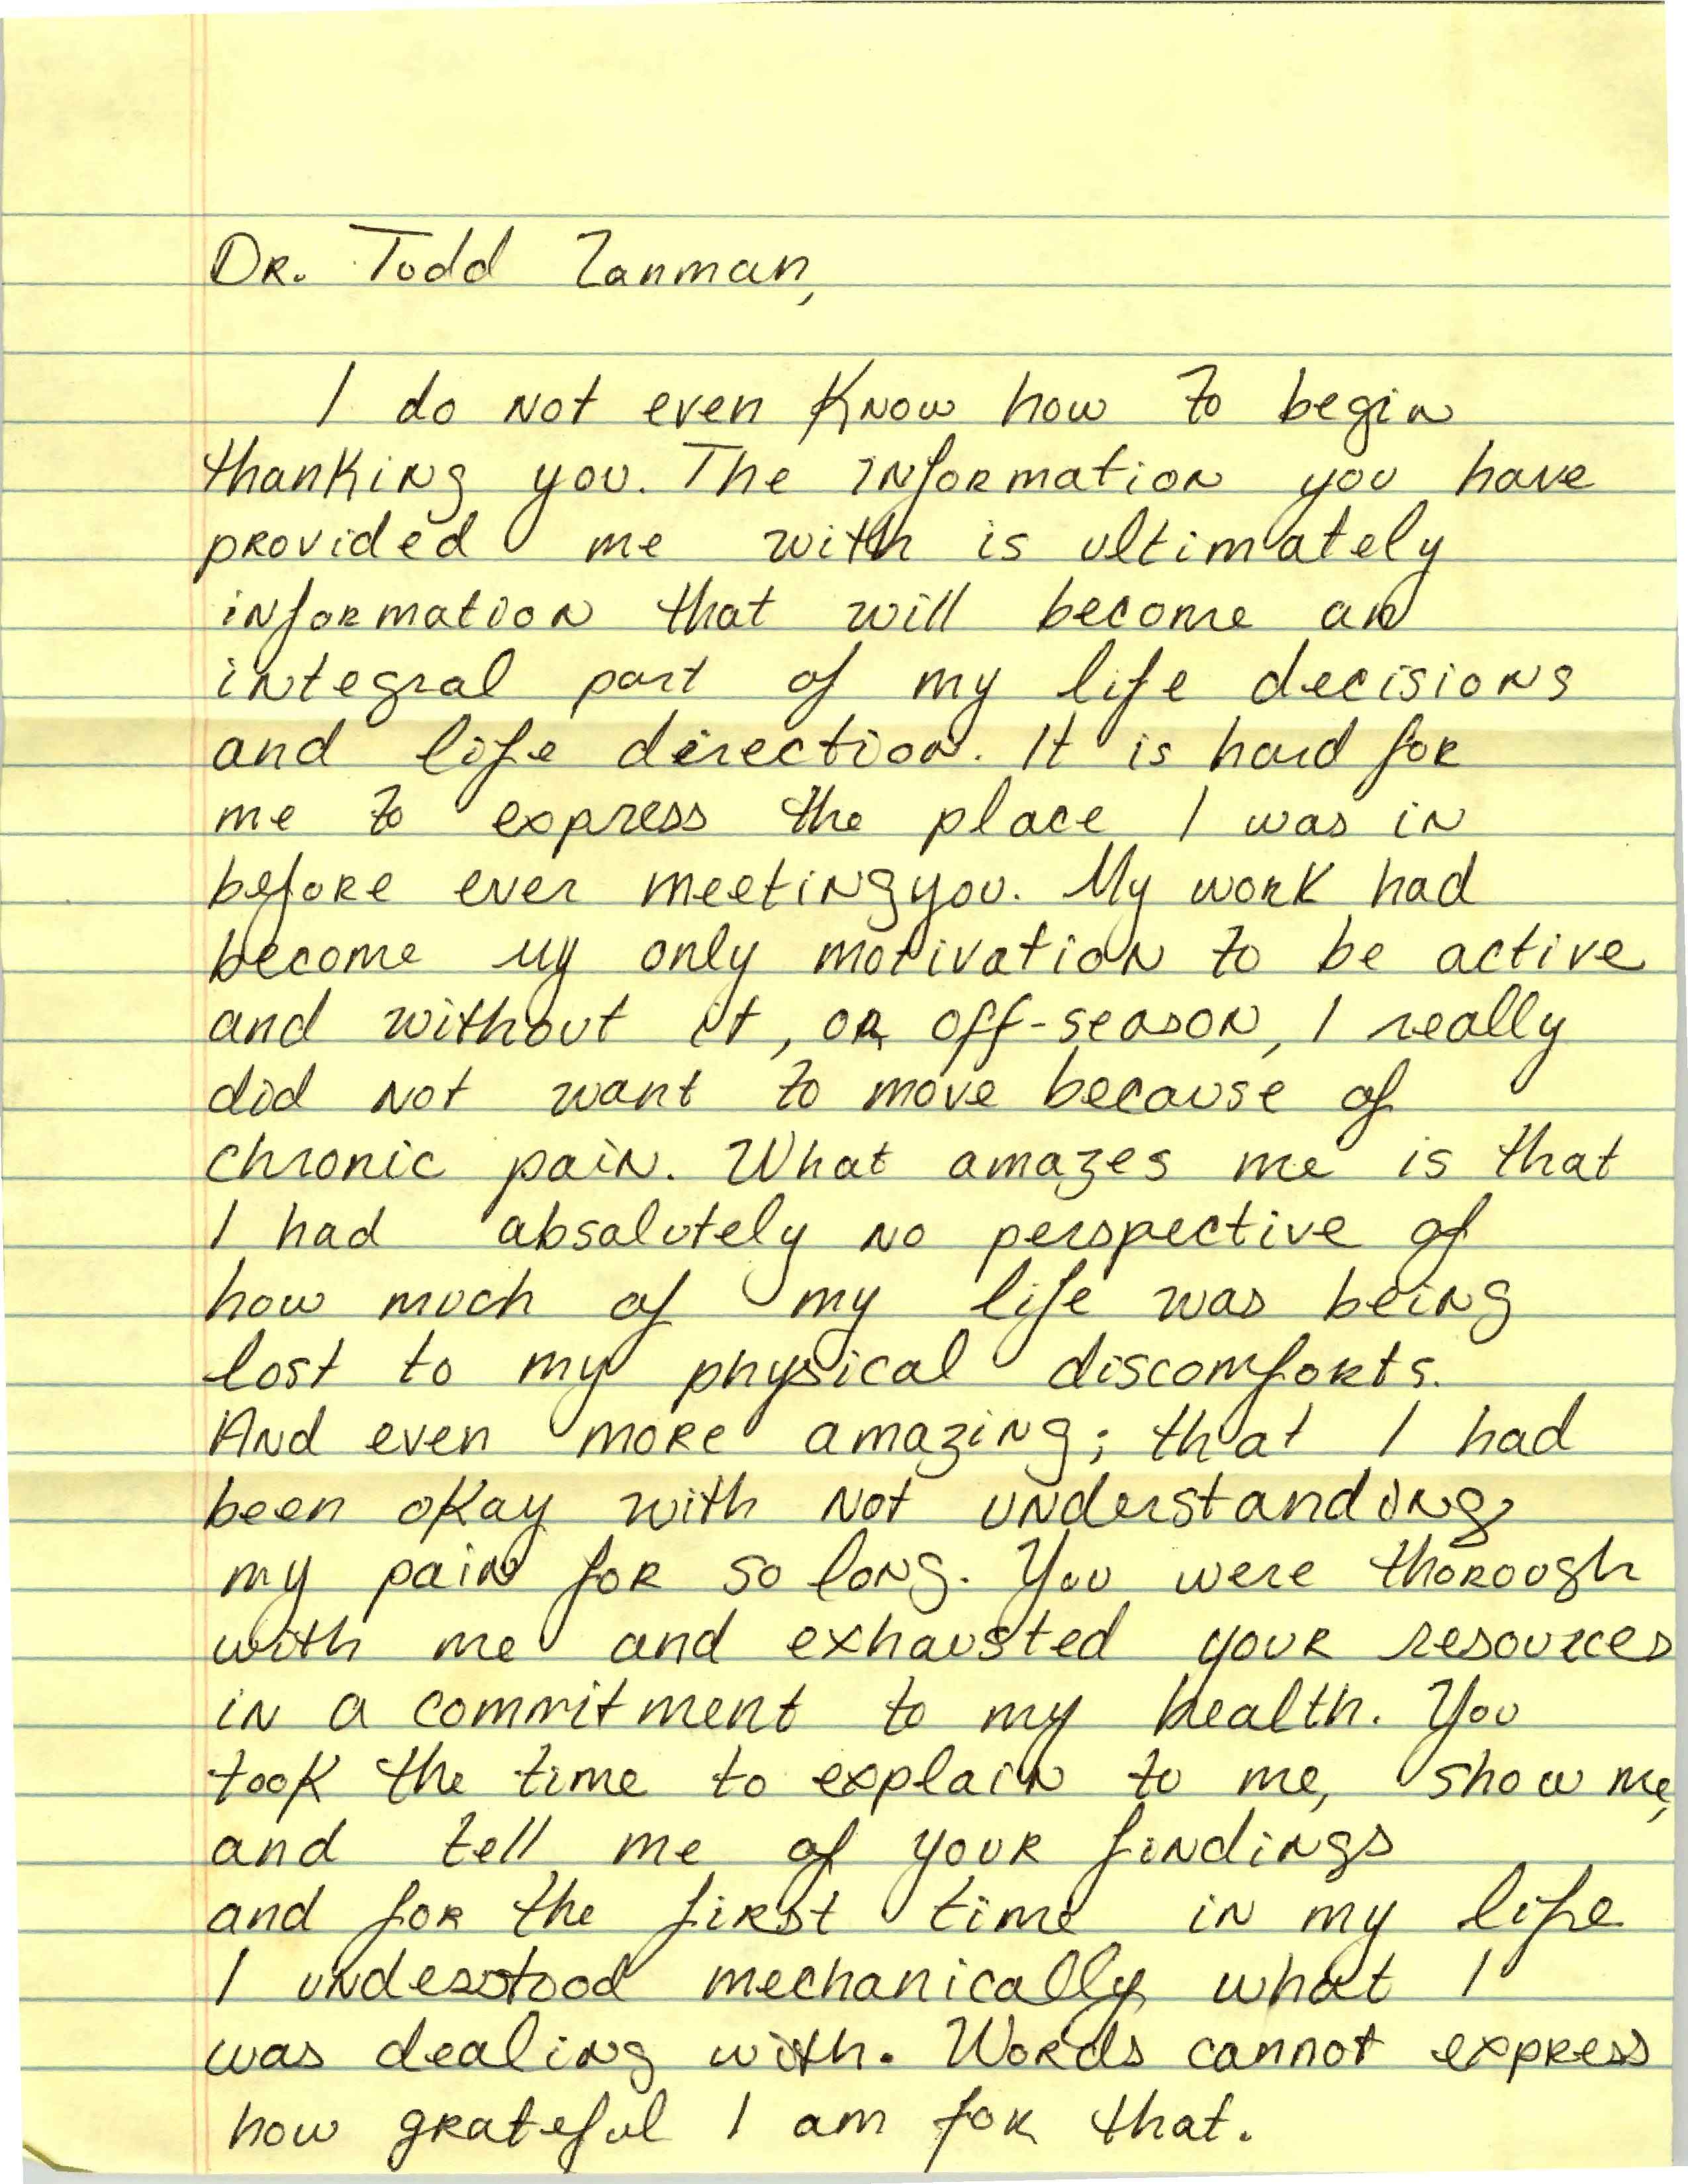 Dr. Todd Zanman,
I do not even know how to begin
thanking you. The information you have
provided me with is ultimately
information that will become an
integral part of my life decisions
and life direction. It is hard for
me to express the place I was in
before ever meeting you. My work had
become my only motivation to be active
and without it, or off-season, I really
did not want to move because of
chronic pain. What amazes me is that
I had absolutely no perspective of
how much of my life was being
lost to my physical discomforts.
And even more amazing; that I had
been okay with not understanding
my pain for so long. You were thorough
with me and exhausted your resources
in a commitment to my health. You
took the time to explain to me, show me,
and tell me of your findings
and for the first time in my life
I understood mechanically what I
was dealing with. Words cannot express
how grateful I am for that.